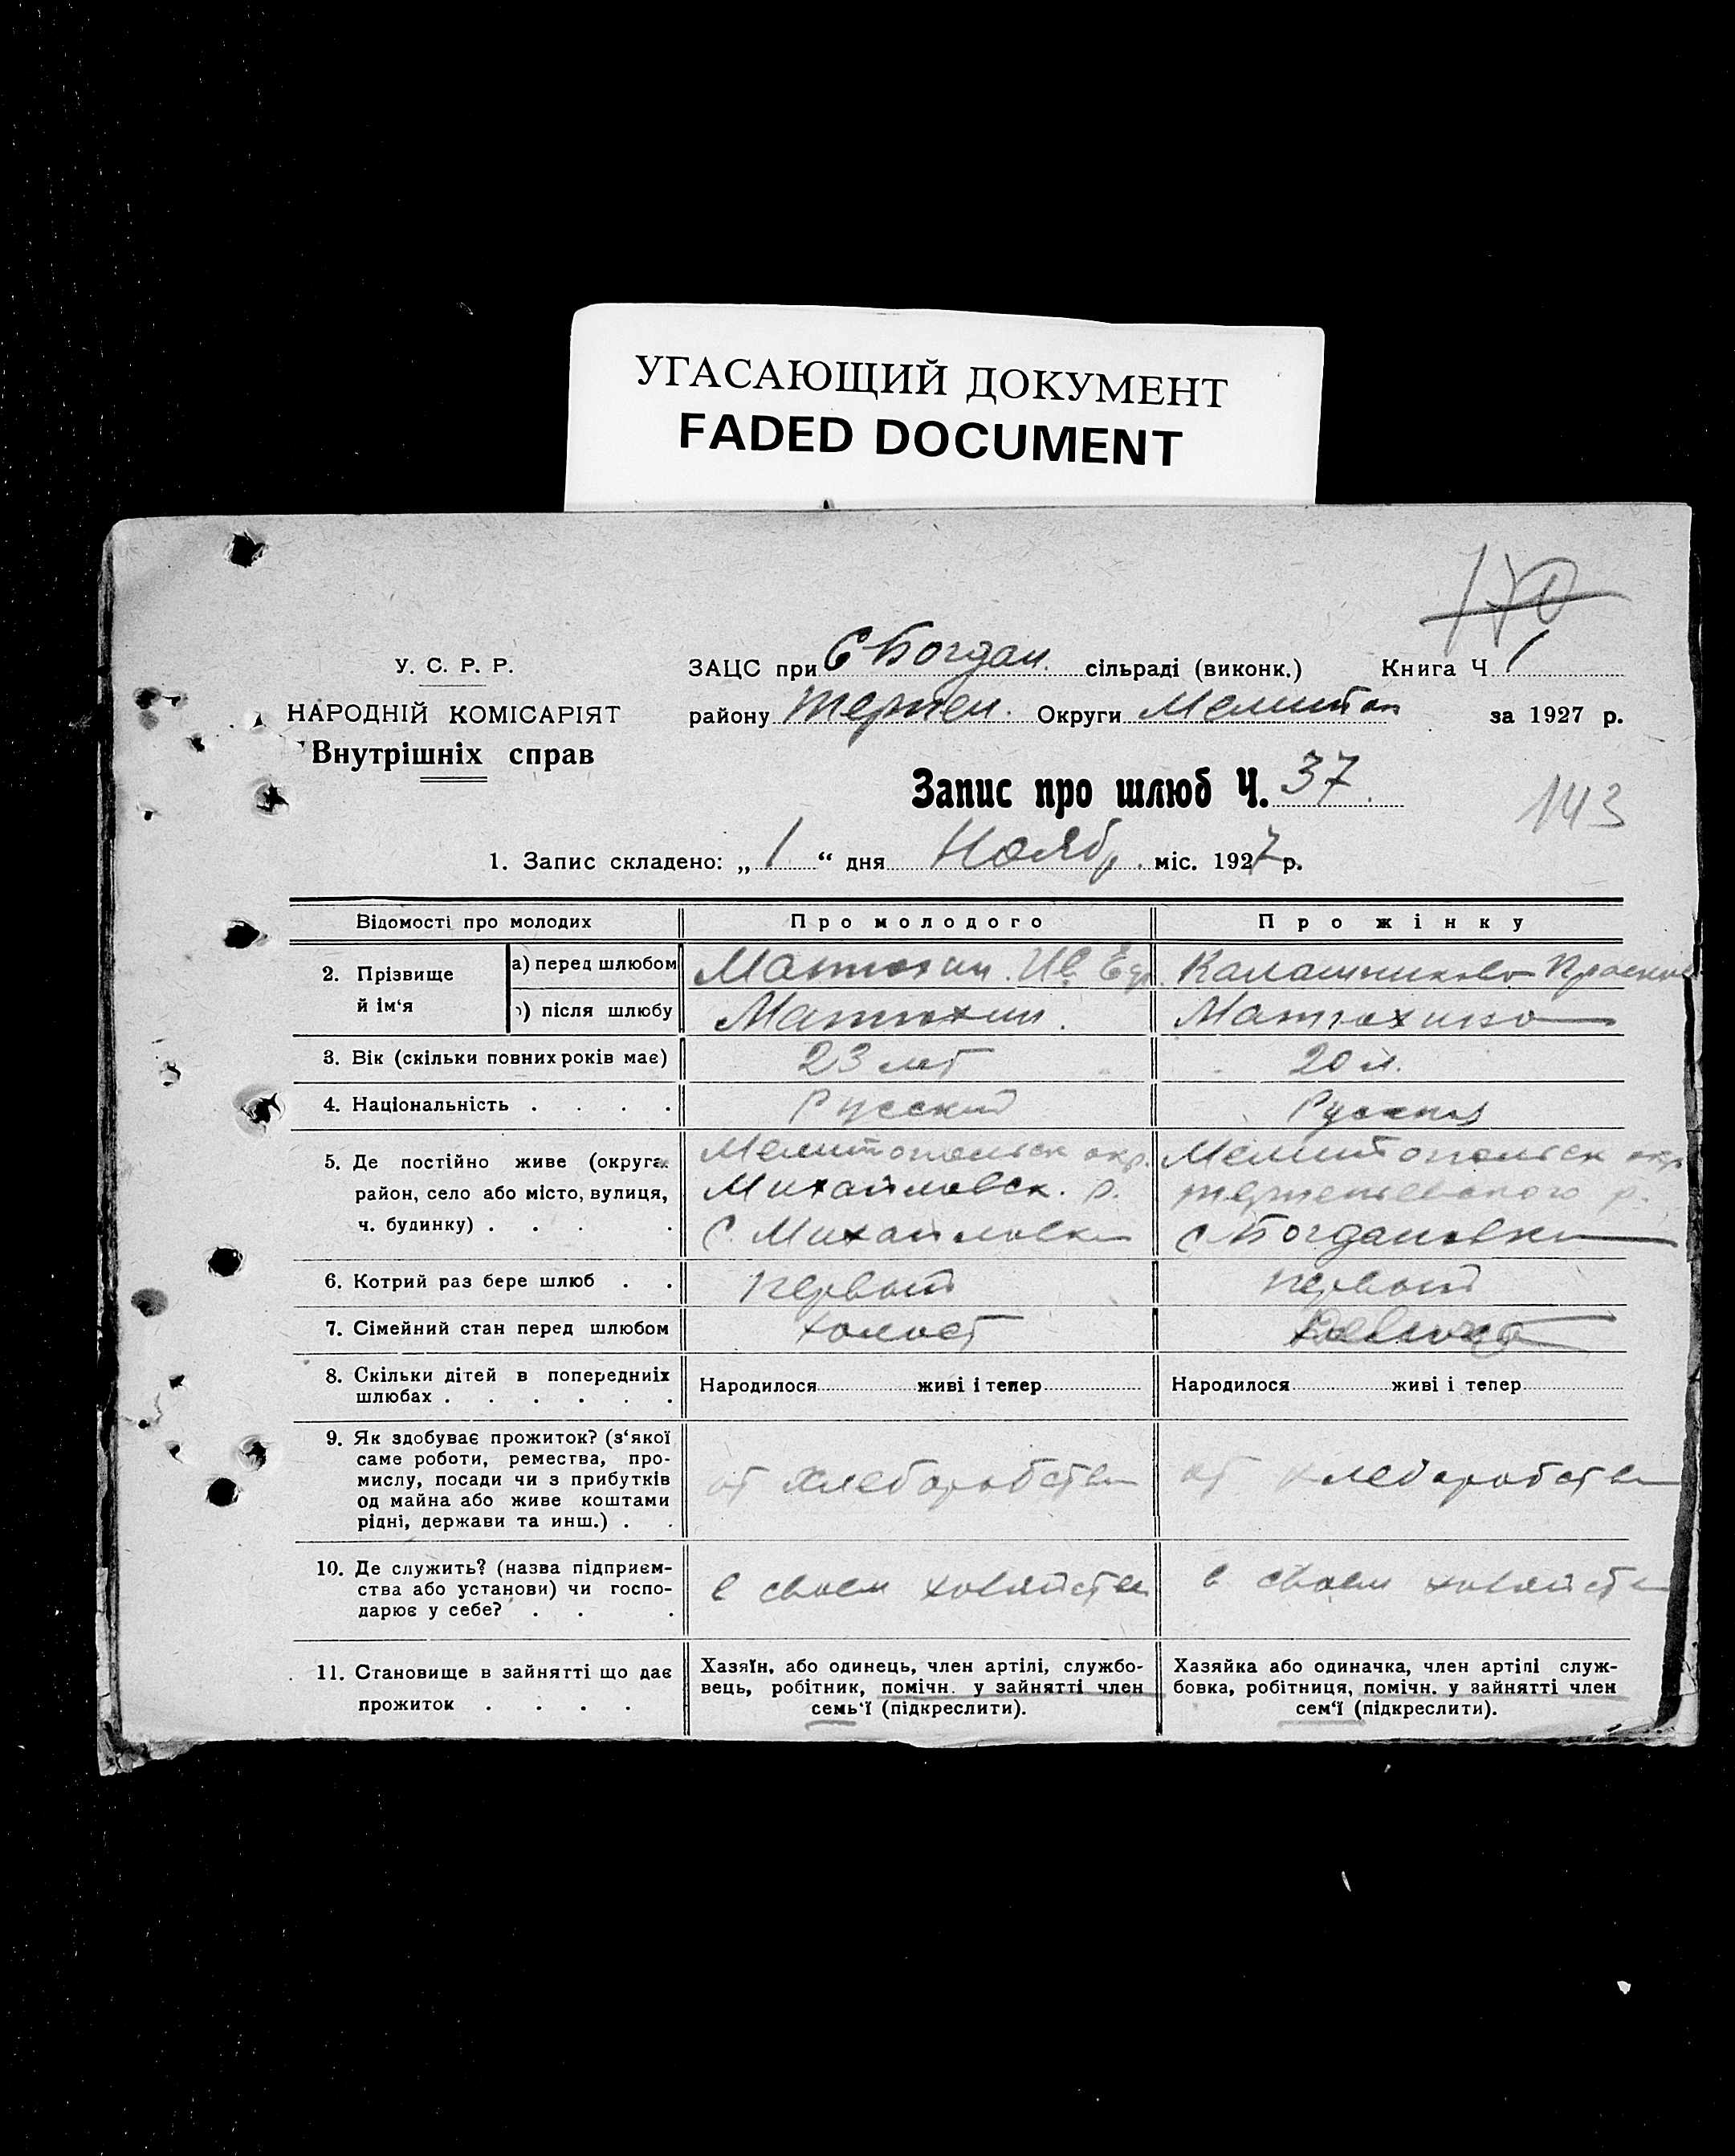 УГАСАЮЩИЙ ДОКУМЕНТ
FADED DOCUMENT
170
У. С. Р. Р.
НАРОДНІЙ КОМІСАРІЯТ
Внутрішніх справ
ЗАЦС при С Богдан. сільраді (виконк.) Книга Ч 1
району Терпен. Округи Мелитоп за 1927 р.
Запис про шлюб Ч. 37
143
1. Запис складено: „ 1 “ дняНоябр. міс. 1927 р.
Відомості про молодих Про молодого Про жінку
2. Прізвище й ім‘я
а) перед шлюбом Матюхин. Ив. Калашникова
) після шлюбу Матюхин. Матюхина
3. Вік (скільки повних років має) 23 лет 20 л.
4. Національність . . . . Русский Русская
5. Де постійно живе (округа Мелитопольск окр. Мелитопольск окр
район, село або місто, вулиця, Михайловск. р. терпеньевского р.
ч. будинку) . . . . С. Михайловка с Богдановка
6. Котрий раз бере шлюб . . первый первый
7. Сімейний стан перед шлюбом холост девица
8. Скільки дітей в попередниіх
шлюбах . . . . . .
Народилося живі і тепер Народилося живі і тепер
9. Як здобуває прожиток? (з‘якої
саме роботи, ремества, про-
мислу, посади чи з прибутків
од майна або живе коштами
рідні, держави та инш.) . .
от хлеборобства от хлеборобства
10. Де служить? (назва підприєм-
ства або установи) чи госпо-
дарює у себе? . . .
в своем хозяйстве в своем хозяйстве
11. Становище в зайнятті що дає
прожиток . . . .
Хазяїн, або одинець, член артілі, службо-
вець, робітник, помічн. у зайнятті член
семь‘ї (підкреслити).
Хазяйка або одиначка, член артілі служ-
бовка, робітниця, помічн. у зайнятті член
сем‘ї (підкреслити).